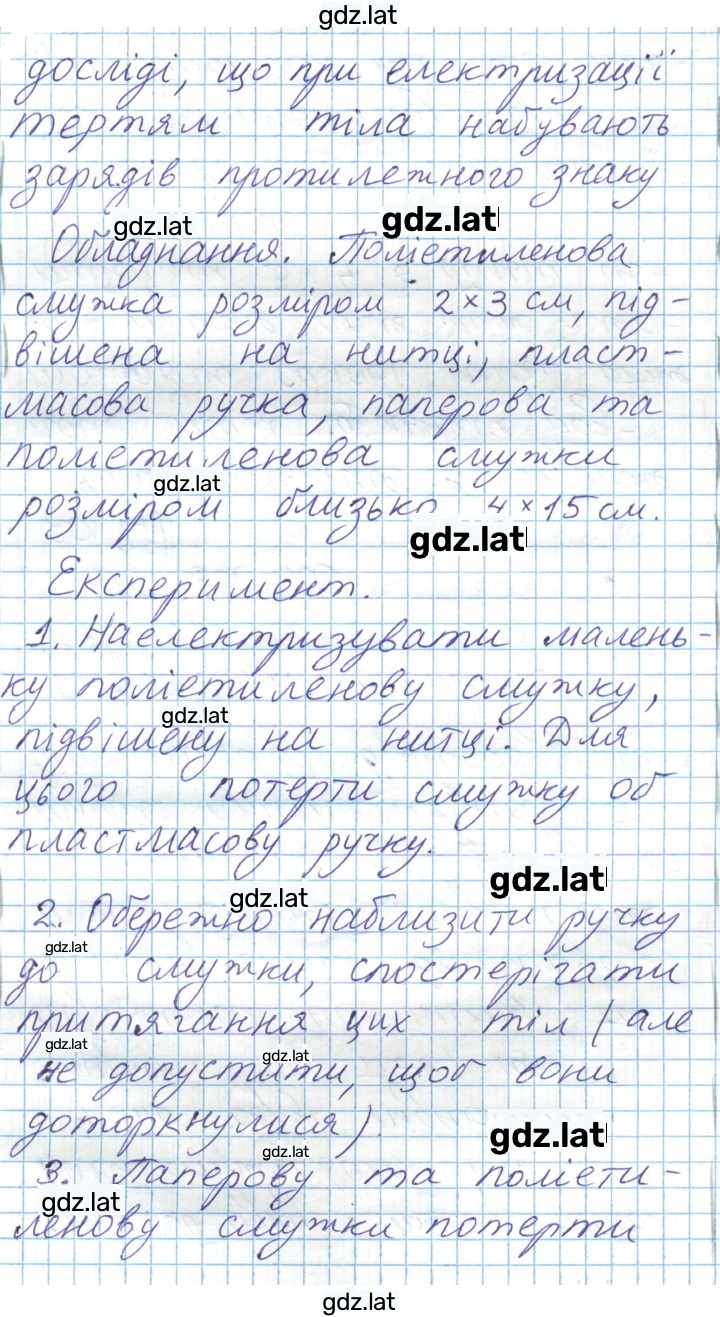 gdz.lat
досліді, що при електризації
тертям тіла набувають
зарядів протилежного знаку
gdz.lat gdz.lat
Обладнання. Поліетиленова
смужка розміром 2×3 см, під-
вішена на нитці, пласт-
масова ручка, паперова та
поліетиленова смужки
gdz.lat
розміром близько 4×15 см.
gdz.lat
Експеримент.
1. Наелектризувати малень-
ку поліетиленову смужку,
gdz.lat
підвішену на нитці. Для
цього потерти смужку об
пластмасову ручку.
gdz.lat
gdz.lat
2. Обережно наблизити ручку
gdz.lat
до смужки, спостерігати
притягання цих тіл (але
gdz.lat gdz.lat
не допустити, щоб вони
доторкнулися).
gdz.lat
gdz.lat
3. Паперову та поліети-
gdz.lat
ленову смужки потерти
gdz.lat